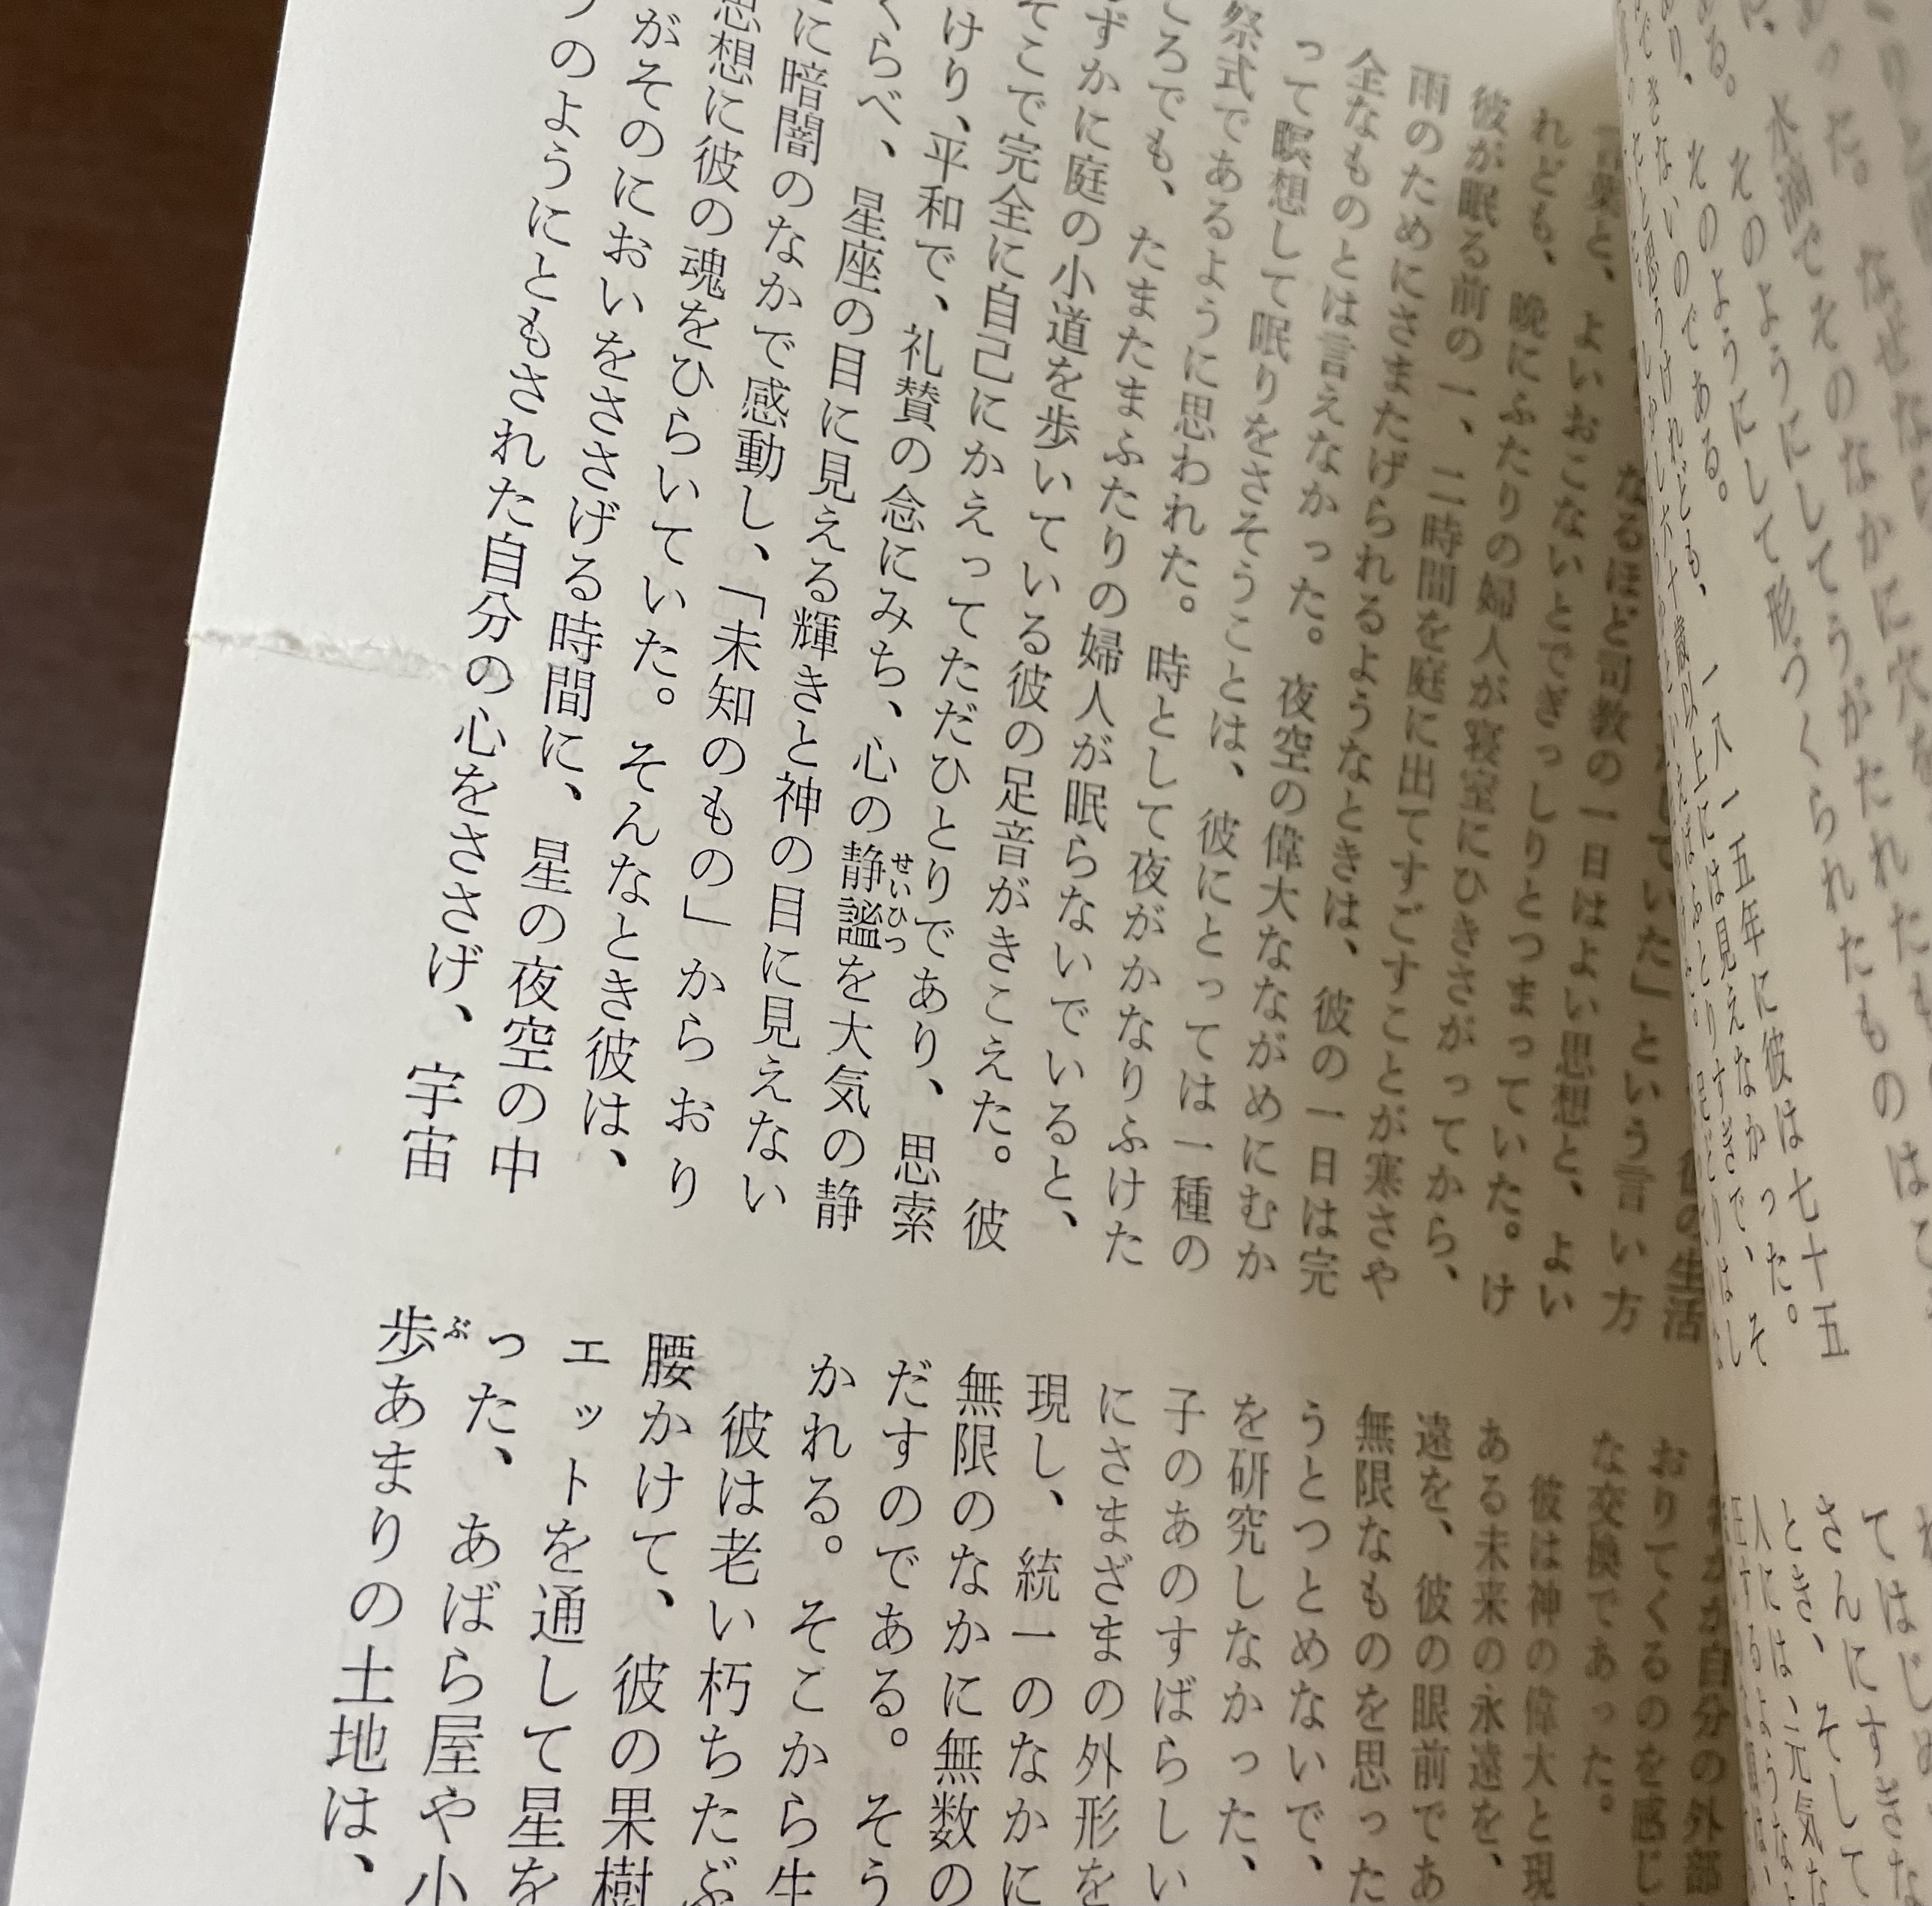 水滴でそのなかに穴
そのようにして形づくられたものはこ
そのようにしてうがたれた
のである。
一八一五年に彼は七十五
六十歳以上には見えなかった。そ
さんにすぎな
とき、そして
人にはい元気だ
彼の生活
ていた」という言い方
なるほど司教の一日はよい思想と、よい
言葉と、よいおこないとでぎっしりとつまっていた。け
れども、晩にふたりの婦人が寝室にひきさがってから、
彼が眠る前の一、二時間を庭に出てすごすことが寒さや
雨のためにさまたげられるようなときは、彼の一日は完
全なものとは言えなかった。夜空の偉大なながめにむか
って瞑想して眠りをさそうことは、彼にとっては一種の
祭式であるように思われた。時として夜がかなりふけた
ころでも、たまたまふたりの婦人が眠らないでいると、
ずかに庭の小道を歩いている彼の足音がきこえた。彼
そこで完全に自己にかえってただひとりであり、思索
けり、平和で、礼賛の念にみち、心の静謐せいひつを大気の静
くらべ、星座の目に見える輝きと神の目に見えない
に暗闇のなかで感動し、「未知のもの」からおり
思想に彼の魂をひらいていた。そんなとき彼は、
がそのにおいをささげる時間に、星の夜空の中
うのようにともされた自分の心をささげ、宇宙
か自分の外部
おりてくるのを感じ
な交換であった。
彼は神の偉大と現
ある未来の永遠を、
遠を、彼の眼前であ
無限なものを思った
うとつとめないで、
を研究しなかった、
子のあのすばらしい
にさまざまの外形を
現し、統一のなかに
無限のなかに無数の
だすのである。そう
かれる。そこから生
彼は老い朽ちたぶ
腰かけて、彼の果樹
エットを通して星を
った、あばら屋や小
歩ぶあまりの土地は、